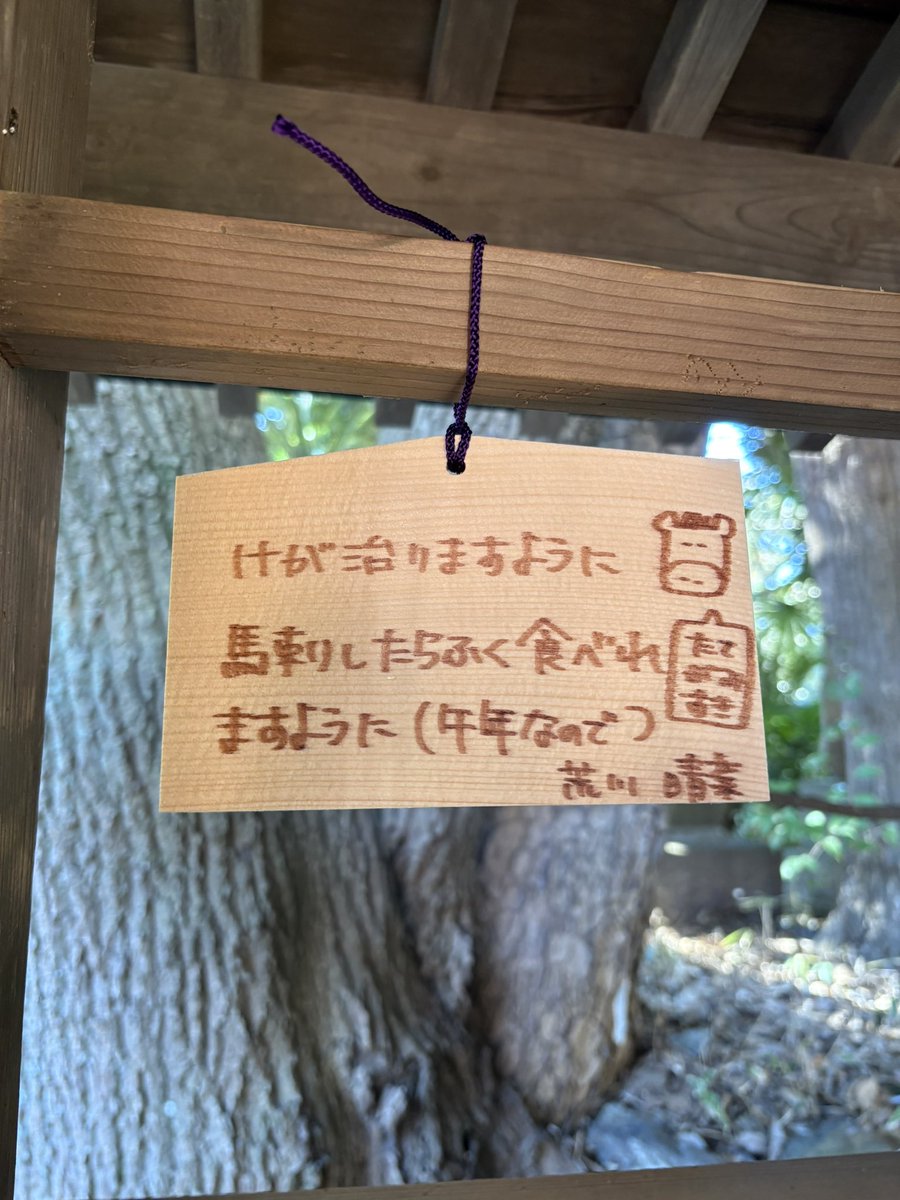 けが治りますように
馬刺したらふく食べれ
ますように(午年なので)
荒川 晴菜